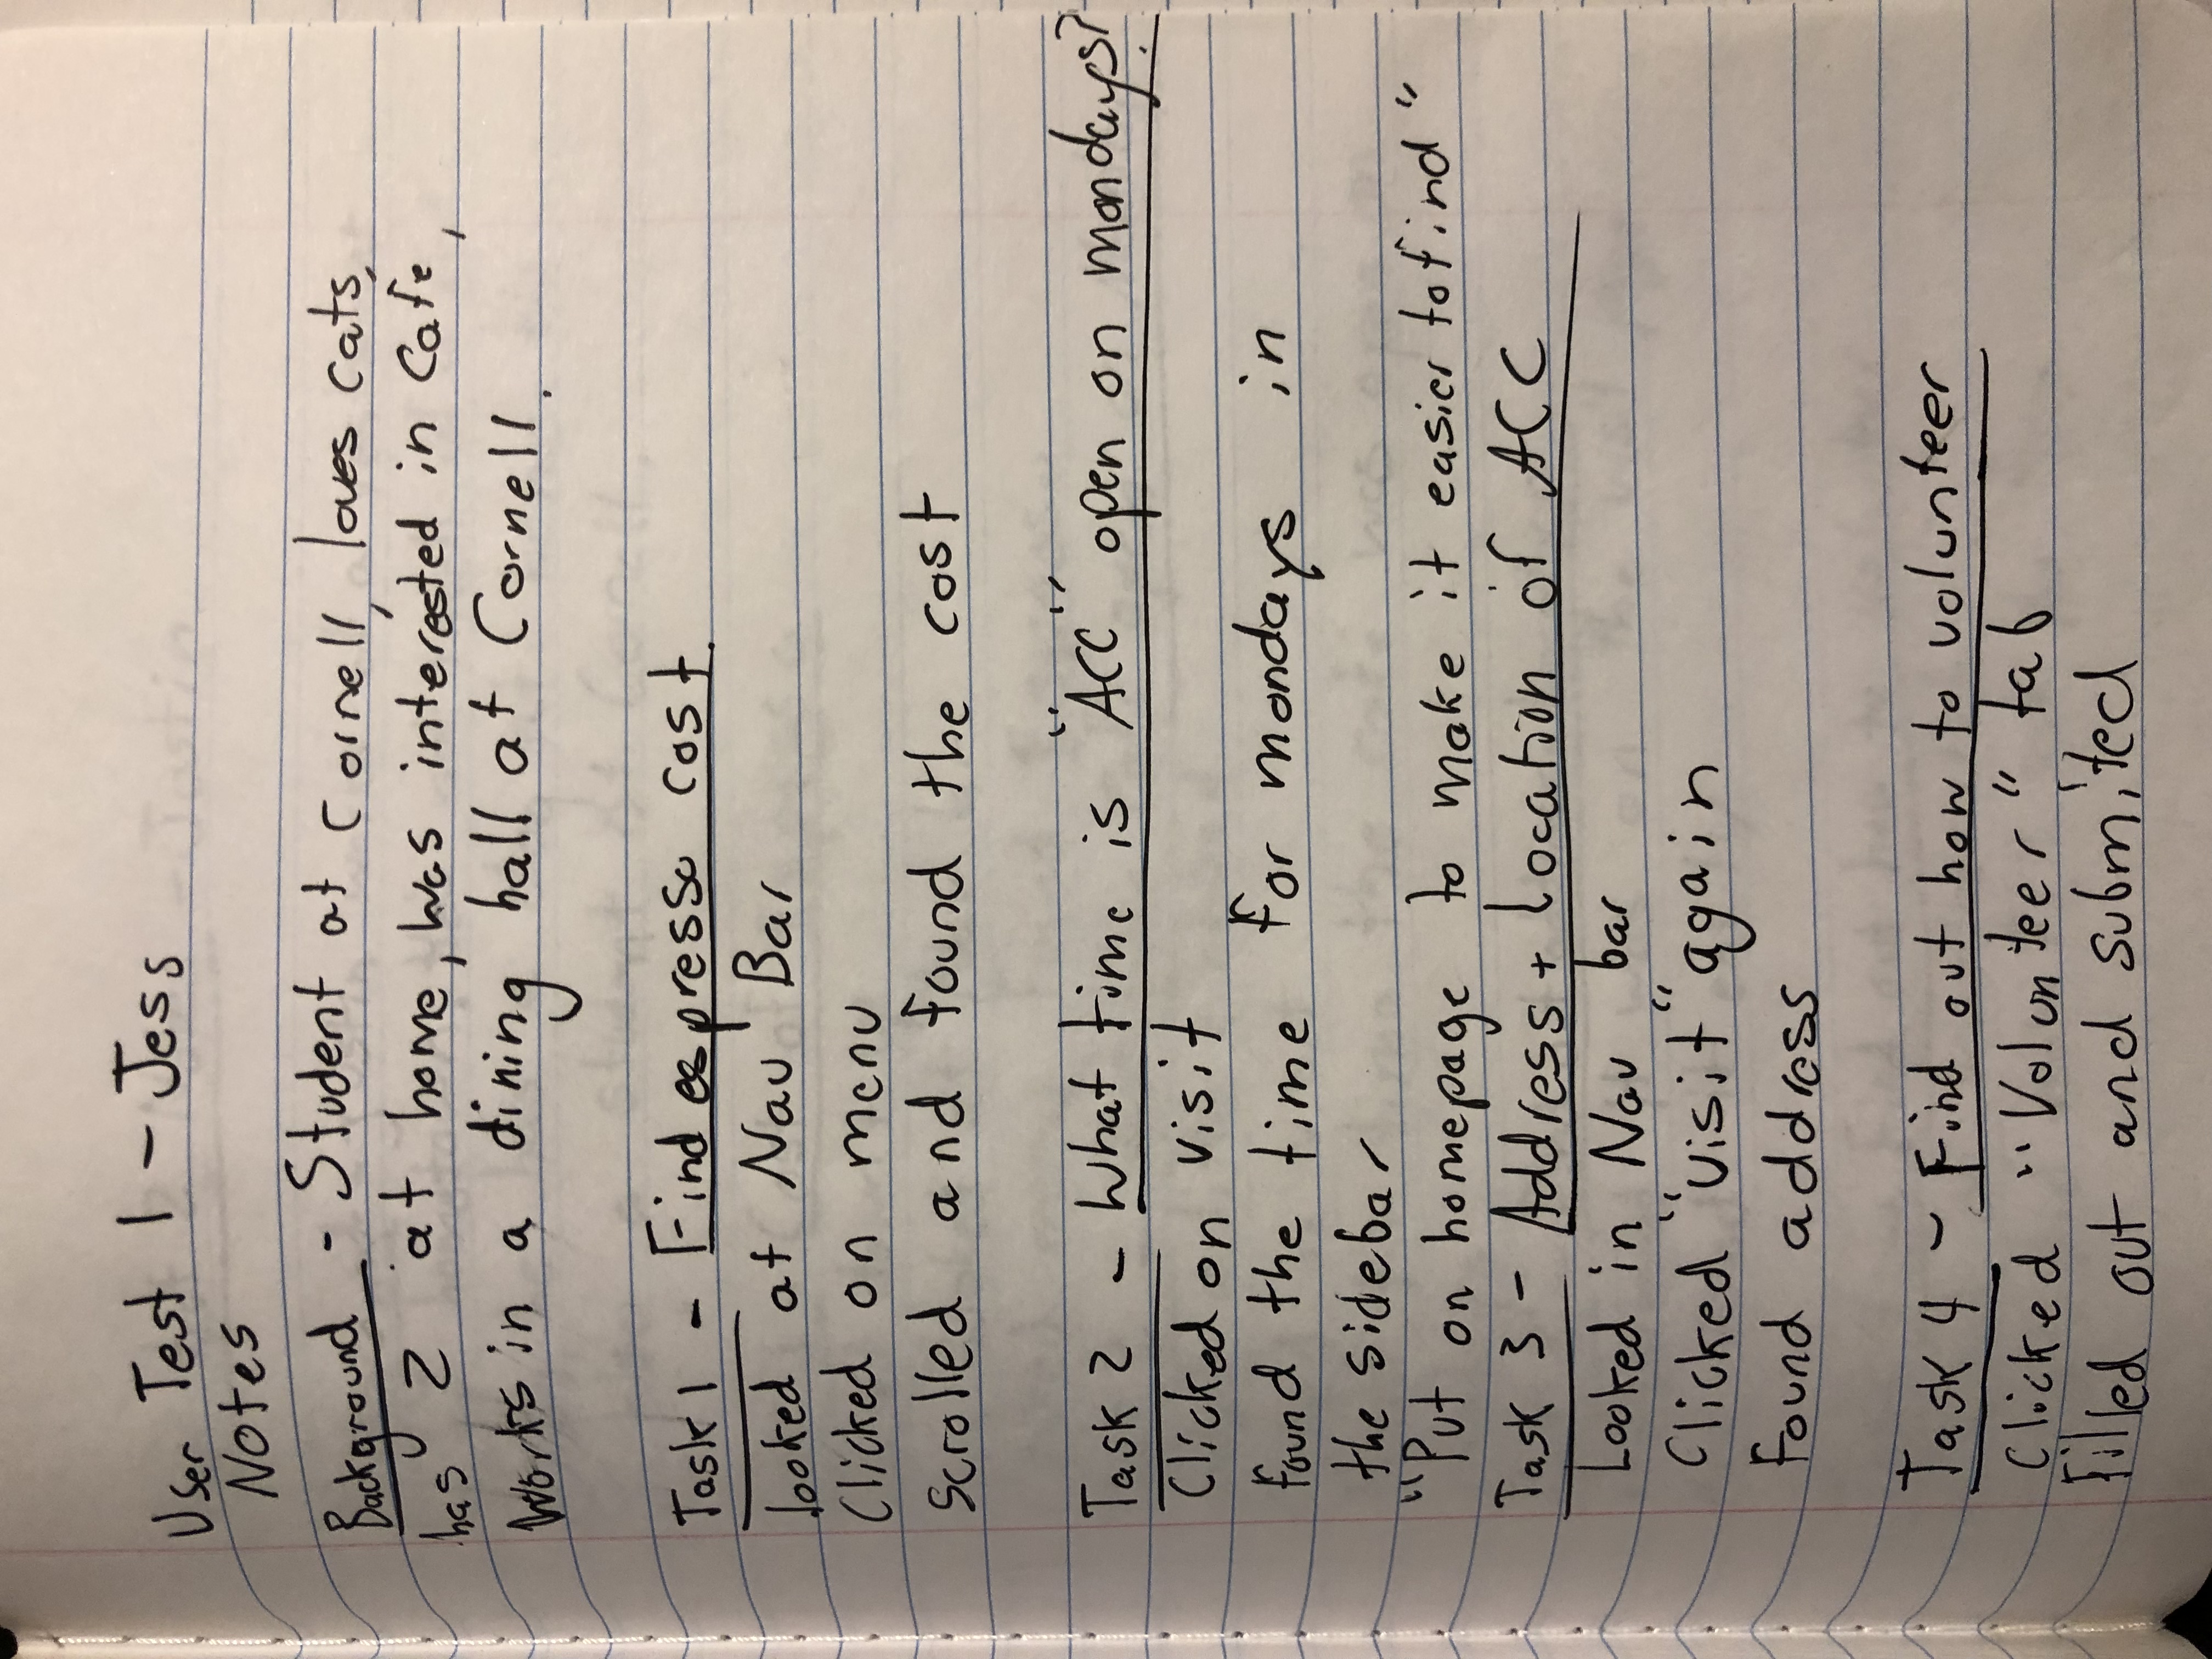 User Test 1 - Jess
Notes
Background - Student at Cornell, loves cats,
has 2 at home, was interested in Cafe,
Works in a dining hall at Cornell.
Task 1 - Find espresso cost.
looked at Nav Bar
Clicked on menu
scrolled and found the cost
Task 2 - What time is "ACC" open on mondays?
Clicked on visit
found the time for mondays in
the sidebar
"Put on homepage to make it easier to find"
Task 3 - Address + Location of ACC
Looked in Nav bar
Clicked "visit" again
Found address
Task 4 - Find out how to volunteer
Clicked "Volunteer" tab
Filled out and submited